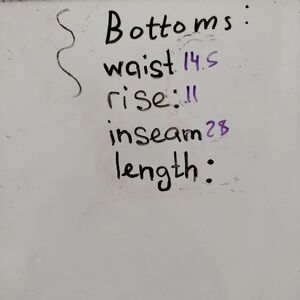 Bottoms:
waist 14.5
rise: 11
inseam 28
length: